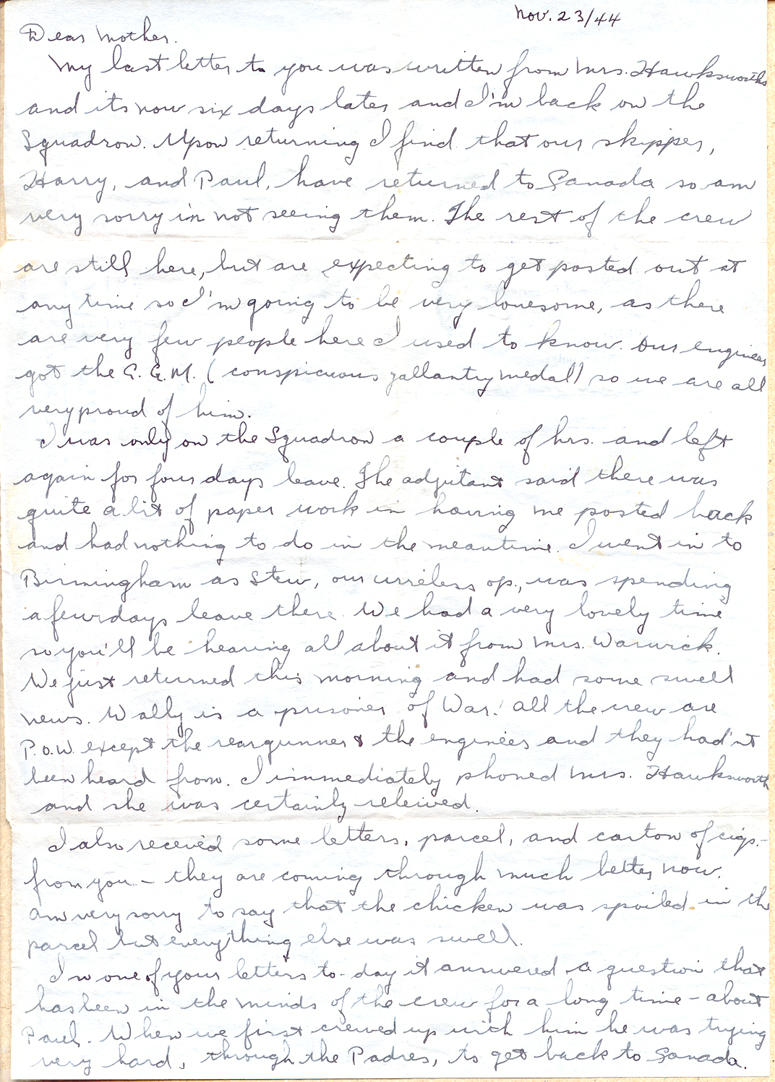 Nov. 23/44
Dear Mother.
My last letter to you was written from Mrs. Hawksworths
and its now six days later and I'm back on the
Squadron. Upon returning I find that our skipper,
Harry, and Paul, have returned to Canada so am
very sorry in not seeing them. The rest of the crew
are still here, but are expecting to get posted out at
any time so I'm going to be very lonesome, as there
are very few people here I used to know. Our engineer
got the C.G.M. (conspicuous gallantry medal) so we are all
very proud of him.
I was only on the Squadron a couple of hrs. and left
again for four days leave. The adjutant said there was
quite a bit of paper work in having me posted back
and had nothing to do in the meantime. I went in to
Birmingham as Stew, our wireless op., was spending
a few days leave there. We had a very lovely time
so you'll be hearing all about it from Mrs. Warwick.
We just returned this morning and had some swell
news. Wally is a prisoner of War! all the crew are
P.O.W. except the reargunner & the engineer and they had'nt
been heard from. I immediately phoned Mrs. Hawksworth
and she was certainly releived.
I also received some letters, parcel, and carton of cigs.-
from you - they are coming through much better now.
am very sorry to say that the chicken was spoiled in the
parcel but everything else was swell.
In one of your letters to-day it answered a question that
has been in the minds of the crew for a long time - about
Paul. When we first crewed up with him he was trying
very hard, through the Padres, to get back to Canada.